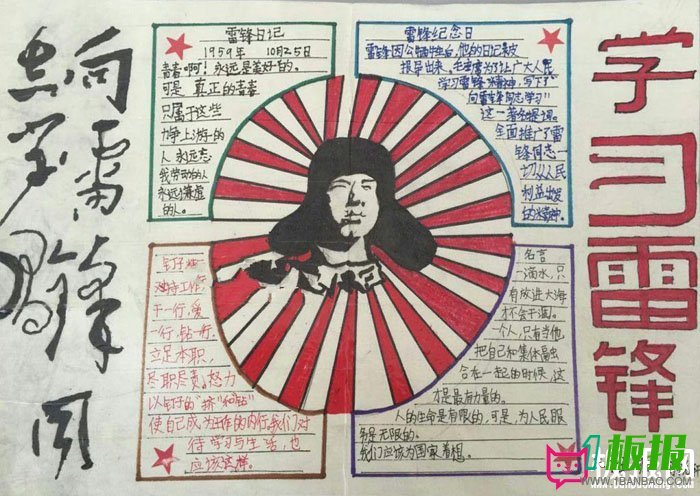 向雷锋同
志学习
学习雷锋
雷锋日记
1959年 10月25日
青春啊!永远是美好的。
可是 真正的青春
只属于这些
力争上游的
人 永远忘
我劳动的人
永远谦虚
的人。
雷锋纪念日
雷锋因公牺牲后,他的日记被
报导出来,毛主席为了让广大人民
学习雷锋精神,写下了
"向雷锋同志学习"
这一著名题词。
全面推广了雷
锋同志一
切从人民
利益出发
的精神。
钉子
对待工作,
干一行,爱
一行,钻一行,
立足本职,
尽职尽责,努力
以钉子的"挤"和"钻"
使自己成为工作的内行,我们对
待学习与生活,也
应该这样。
名言
一滴水,只
有放进大海
才不会干涸。
一个人,只有当他
把自己和集体
合在一起的时候,这
才是最有力量的。
人的生命是有限的,可是,为人民服
务是无限的。
我们应该为国家着想。
1板报
WWW.1BANBAO.COM